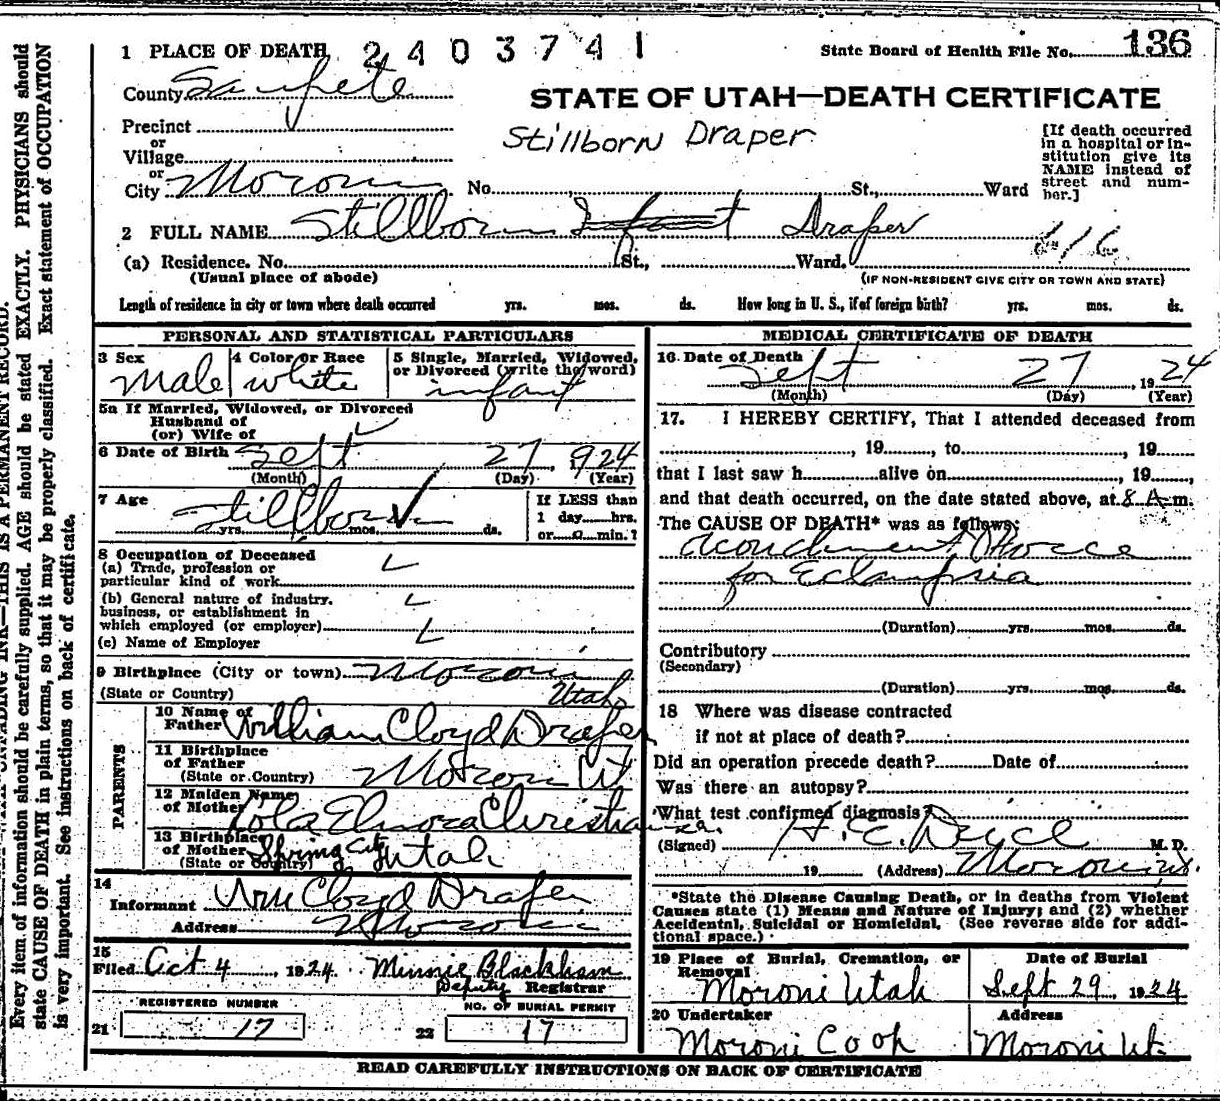 1 PLACE OF DEATH 2403741 State Board of Health File No. 136
County Sanpete
STATE OF UTAH—DEATH CERTIFICATE
Precinct
or
Village
or
City Moroni No. St., Ward
Stillborn Draper
[If death occurred
in a hospital or in-
stitution give its
NAME instead of
street and num-
ber.]
2 FULL NAME Stillborn Infant Draper 616
(a) Residence. No. St., Ward.
(Usual place of abode) (IF NON-RESIDENT GIVE CITY OR TOWN AND STATE)
Length of residence in city or town where death occurred yrs. mos. ds. How long in U. S., if of foreign birth? yrs. mos. ds.
PERSONAL AND STATISTICAL PARTICULARS
3 Sex 4 Color or Race 5 Single, Married, Widowed,
or Divorced (write the word)
Male white infant
5a If Married, Widowed, or Divorced
Husband of
(or) Wife of
6 Date of Birth Sept 27, 1924
(Month) (Day) (Year)
7 Age Stillborn
yrs. mos. ds.
If LESS than
1 day hrs.
or min.?
8 Occupation of Deceased
(a) Trade, profession or
particular kind of work
(b) General nature of industry.
business, or establishment in
which employed (or employer)
(c) Name of Employer
9 Birthplace (City or town) Moroni
(State or Country) Utah
PARENTS
10 Name of
Father William Cloyd Draper
11 Birthplace
of Father
(State or Country) Moroni Ut
12 Maiden Name
of Mother Lola Elnora Christiansen
13 Birthplace
of Mother
(State or Country) Spring City Utah
14
Informant Wm Cloyd Draper
Address Moroni
15
Filed Oct 4, 1924. Minnie Blackham
Deputy Registrar
REGISTERED NUMBER NO. OF BURIAL PERMIT
21 17 22 17
MEDICAL CERTIFICATE OF DEATH
16 Date of Death
Sept 27, 1924
(Month) (Day) (Year)
17. I HEREBY CERTIFY, That I attended deceased from
, 19 , to , 19
that I last saw h alive on , 19 ,
and that death occurred, on the date stated above, at 8 A m.
The CAUSE OF DEATH* was as follows:
Acouchment Force
for Eclampsia
(Duration) yrs. mos. ds.
Contributory
(Secondary)
(Duration) yrs. mos. ds.
18 Where was disease contracted
if not at place of death?
Did an operation precede death? Date of
Was there an autopsy?
What test confirmed diagnosis?
(Signed) H. C. M. D.
19 (Address) Moroni Ut.
*State the Disease Causing Death, or in deaths from Violent
Causes state (1) Means and Nature of Injury; and (2) whether
Accidental, Suicidal or Homicidal. (See reverse side for addi-
tional space.)
19 Place of Burial, Cremation, or
Removal Date of Burial
Moroni Utah Sept 29 1924
20 Undertaker Address
Moroni Coop Moroni Ut.
READ CAREFULLY INSTRUCTIONS ON BACK OF CERTIFICATE
Every item of information should be carefully supplied. AGE should be stated EXACTLY. PHYSICIANS should
state CAUSE OF DEATH in plain terms, so that it may be properly classified. Exact statement of OCCUPATION
is very important. See instructions on back of certificate.
UNFADING INK—THIS IS A PERMANENT RECORD.